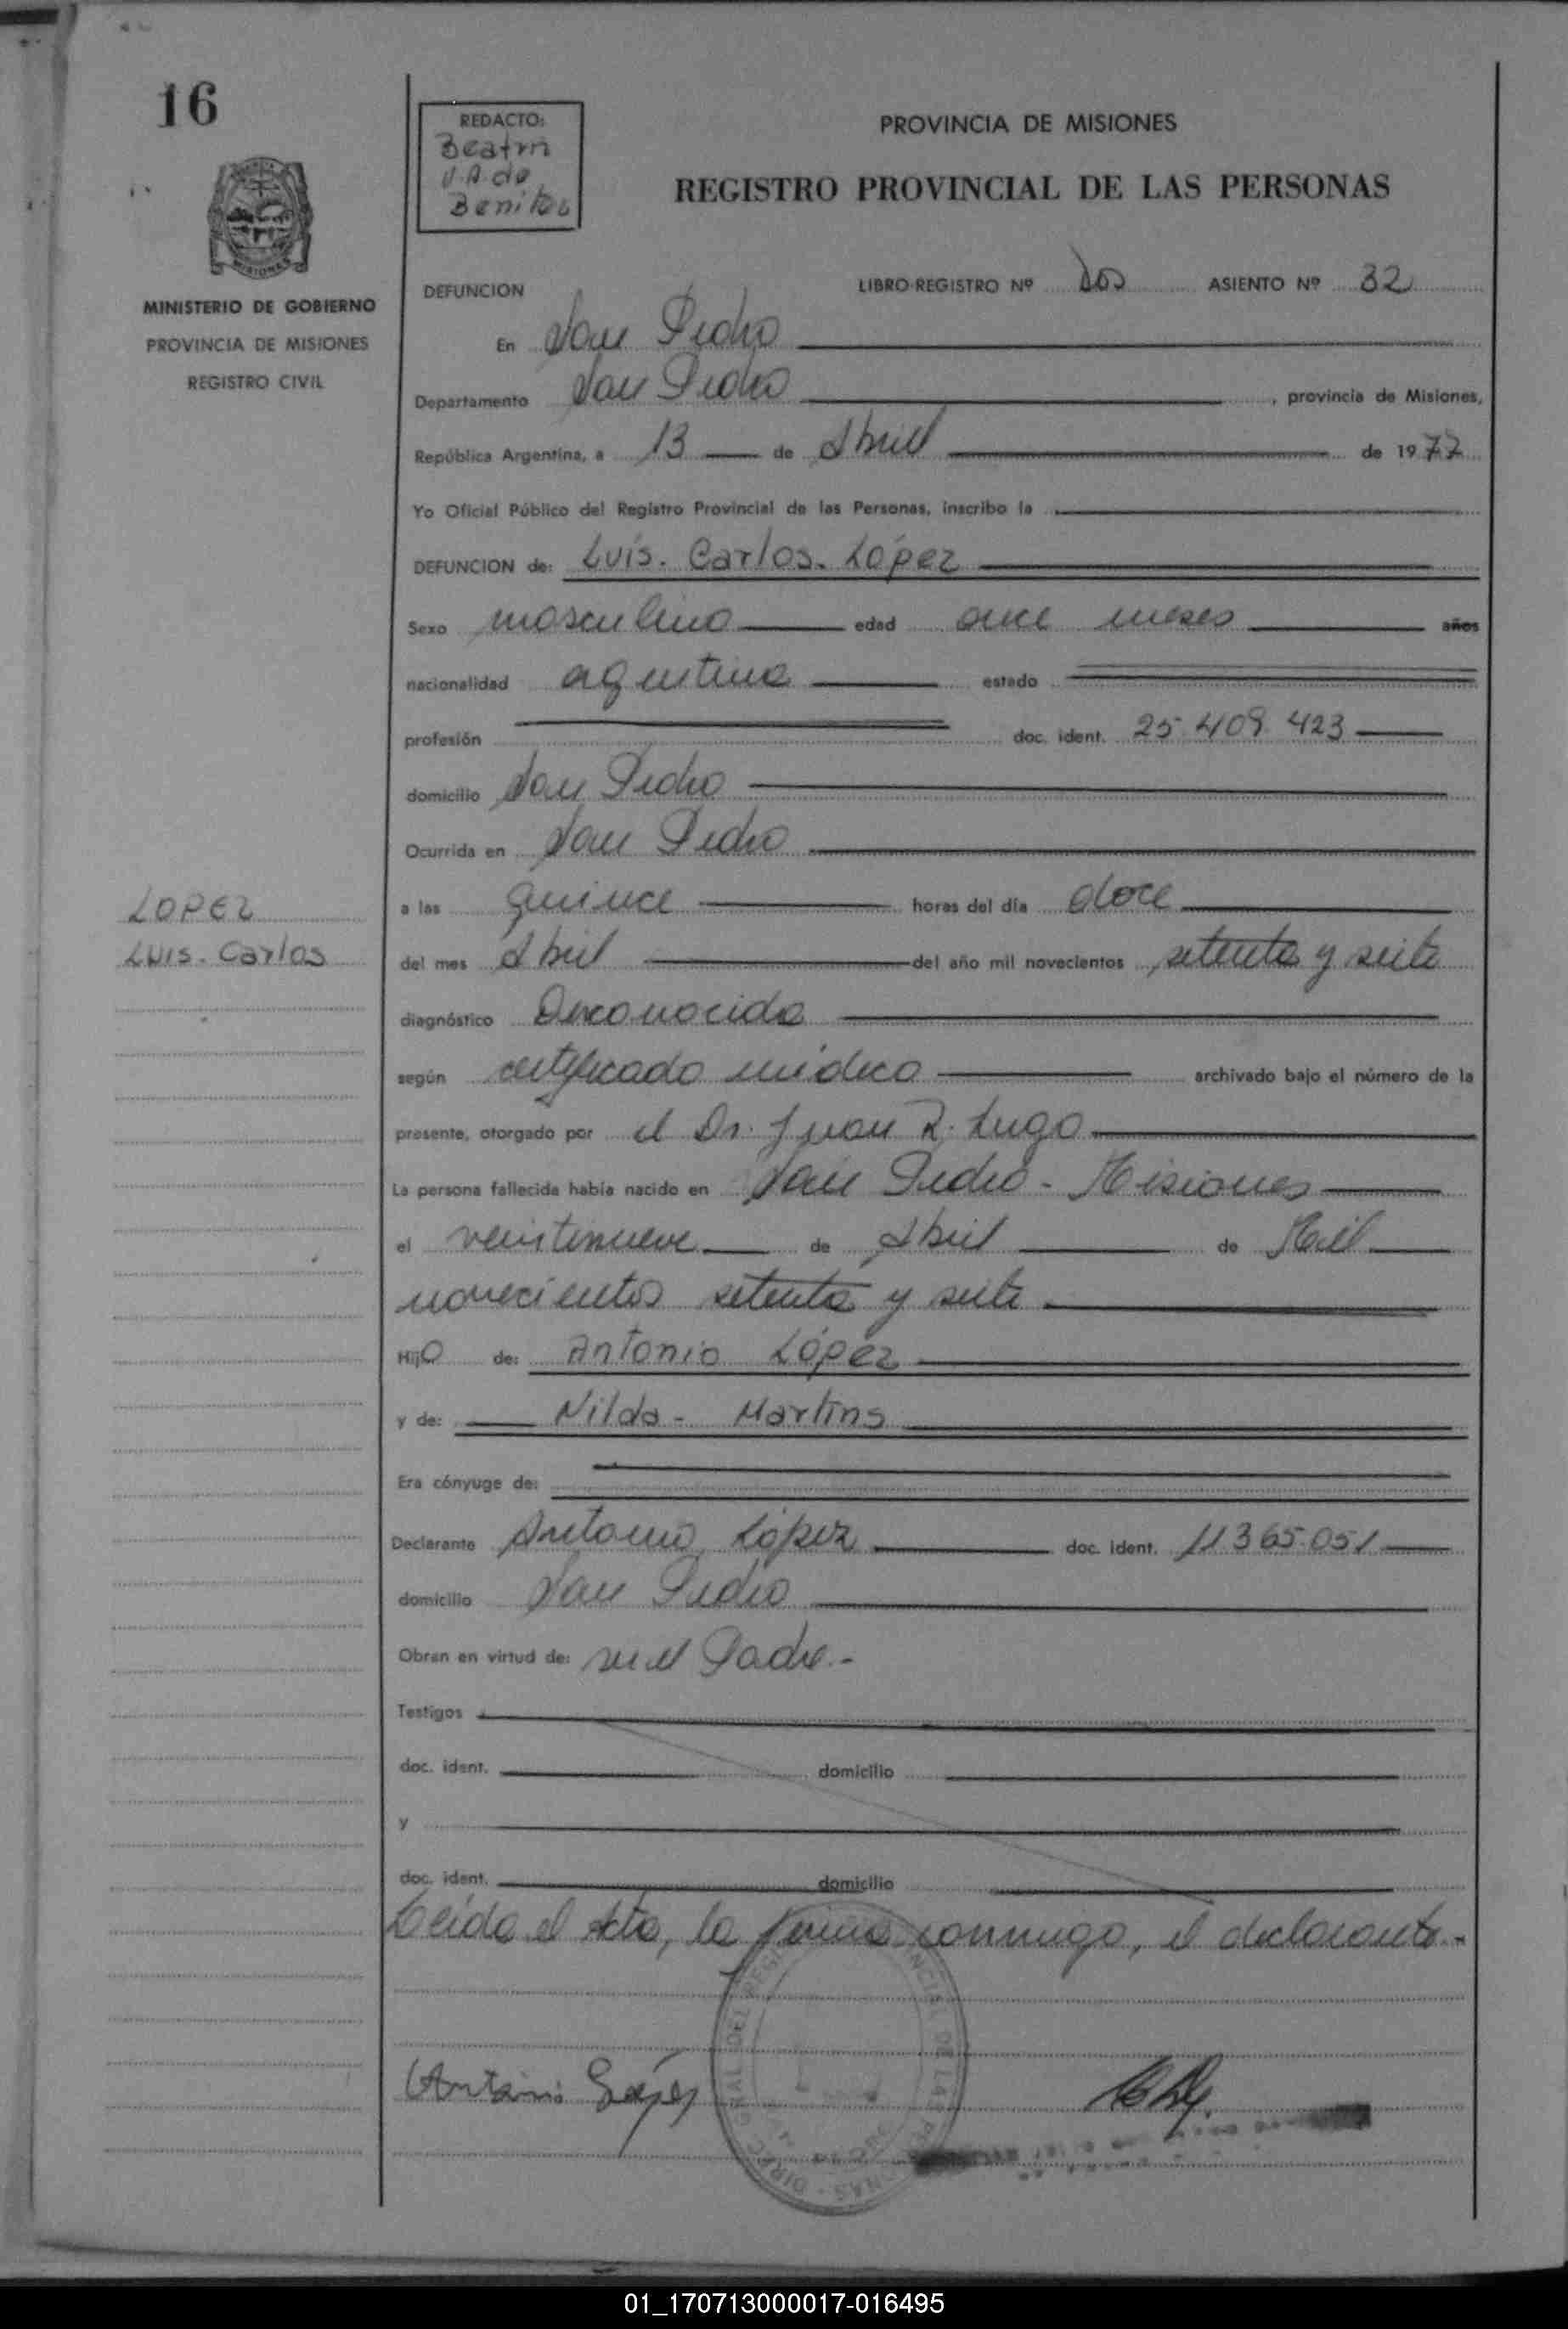 16
REDACTO:
Beatriz
V.A. de
Benitez
PROVINCIA DE MISIONES
REGISTRO PROVINCIAL DE LAS PERSONAS
MISIONES
MINISTERIO DE GOBIERNO
PROVINCIA DE MISIONES
REGISTRO CIVIL
DEFUNCION
LIBRO-REGISTRO Nº dos ASIENTO Nº 32
En San Pedro
Departamento San Pedro, provincia de Misiones,
República Argentina, a 13 de Abril de 1977
Yo Oficial Público del Registro Provincial de las Personas, inscribo la
DEFUNCION de: Luis. Carlos. López
Sexo masculino edad once meses años
nacionalidad argentina estado
profesión doc. ident. 25.409.423
domicilio San Pedro
Ocurrida en San Pedro
LOPEZ
Luis. Carlos
a las quince horas del día doce
del mes Abril del año mil novecientos setenta y siete
diagnóstico Desconocido
según certificado médico archivado bajo el número de la
presente, otorgado por el Dr. Juan R. Lugo
La persona fallecida había nacido en San Pedro - Misiones
el veintinueve de Abril de Mil
novecientos setenta y siete
Hijo de: Antonio López
y de: Nilda - Martins
Era cónyuge de:
Declarante Antonio López doc. ident. 11.365.051
domicilio San Pedro
Obran en virtud de: ser el Padre.-
Testigos
doc. ident. domicilio
y
doc. ident. domicilio
Leída el Acta, la firma conmigo, el declarante.-
Antonio López
01_170713000017-016495